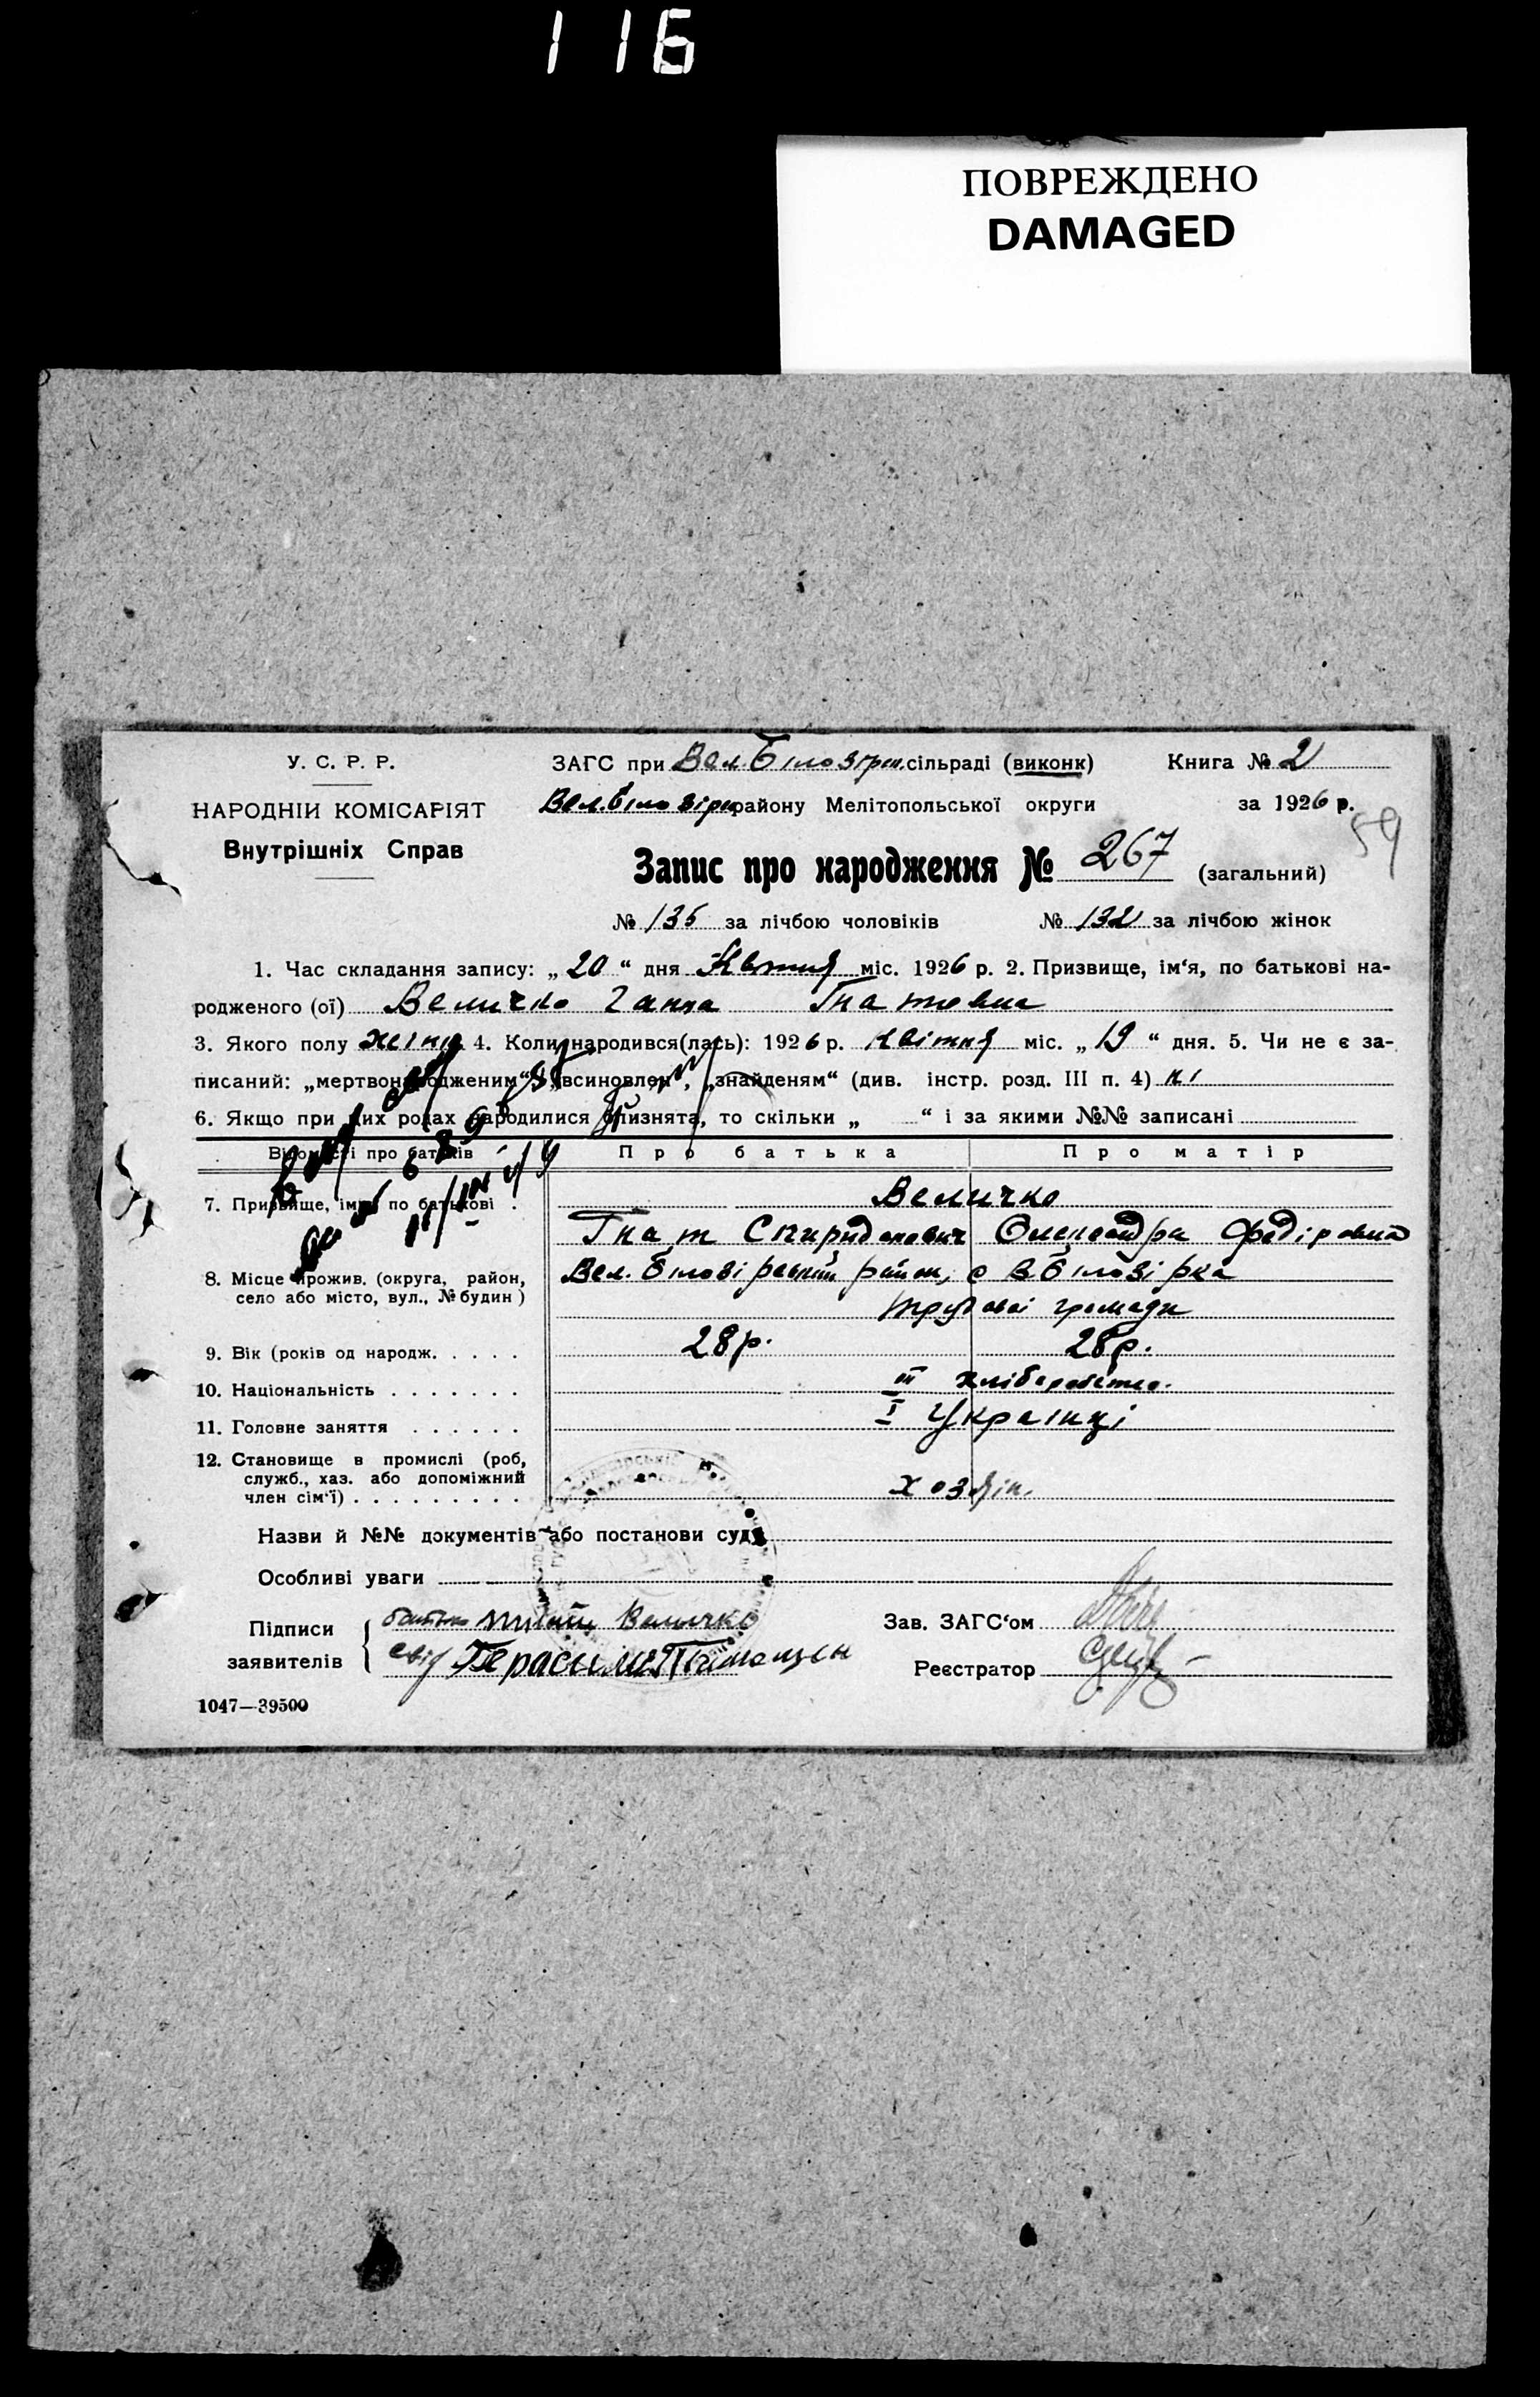 116
ПОВРЕЖДЕНО
DAMAGED
У. С. Р. Р.
ЗАГС при Вел. Білозірк. сільраді (виконк) Книга № 2
НАРОДНІЙ КОМІСАРІЯТ
Вел. Білозірк району Мелітопольської округи за 1926 р.
59
Внутрішніх Справ
Запис про народження № 267 (загальний)
№ 135 за лічбою чоловіків № 132 за лічбою жінок
1. Час складання запису: „ 20 “ дня Квітня міс. 1926 р. 2. Призвище, ім‘я, по батькові на-
родженого (ої) Величко Ганна Гнатовна
3. Якого полу жіноч 4. Коли народився(лась): 1926 р. Квітня міс. „ 19 “ дня. 5. Чи не є за-
писаний: „мертвонародженим“, „всиновлен“, „знайденям“ (див. інстр. розд. III п. 4) ні
6. Якщо при цих родах народилися близнята, то скільки „ “ і за якими №№ записані
Відомості про батьків Про батька Про матір
7. Призвище, ім‘я, по батькові . Величко
Гнат Спиридонович Олександра Федіровна
8. Місце прожив. (округа, район, село або місто, вул., № будин) Вел. Білозірський район, с В. Білозірка
трудової громади
9. Вік (років од народж. . . . . 28 р. 28 р.
10. Національність . . . . . . . III хліборобство.
11. Головне заняття . . . . . . I Українці
12. Становище в промислі (роб,
служб., хаз. або допоміжний
член сім‘ї) . . . . . . . . . хозяїн.
Назви й №№ документів або постанови суду
Особливі уваги
Підписи батько Величко Зав. ЗАГС‘ом
заявителів свід Герасим Реєстратор
1047—39500